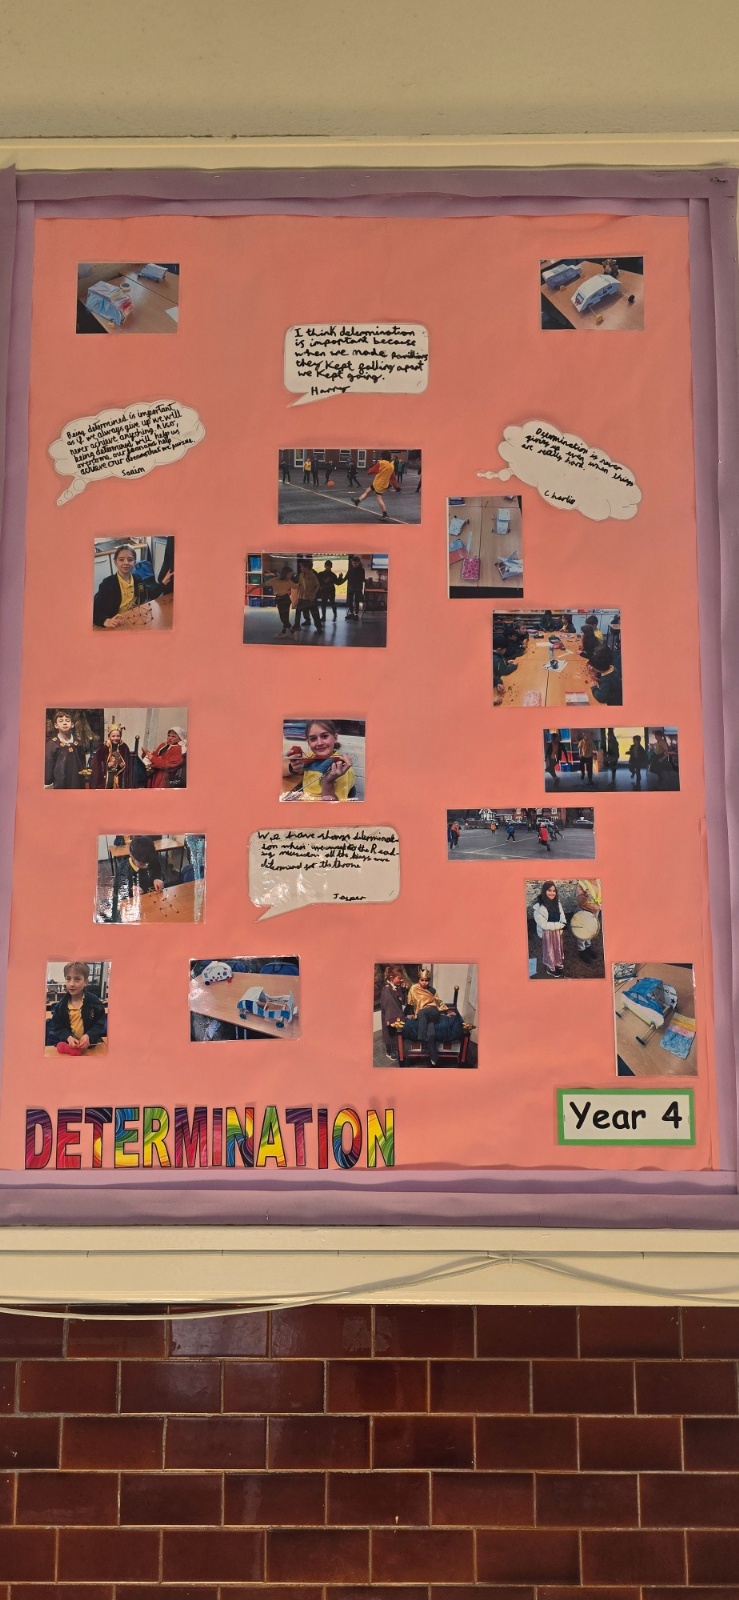 I think determination
is important because
when we made Pavillions
they kept falling apart
we kept going.
Harry
Being determined is important
as if we always give up we will
never achieve anything. Also,
being determined will help us
overcome our
achieve our dreams that we pursue.
Saaim
Determination is never
giving up even when things
are really hard.
Charlie
We have shown determinat-
ion when we went to the Read-
ing museum all the kings were
determined for the throne
Jasper
DETERMINATION
Year 4